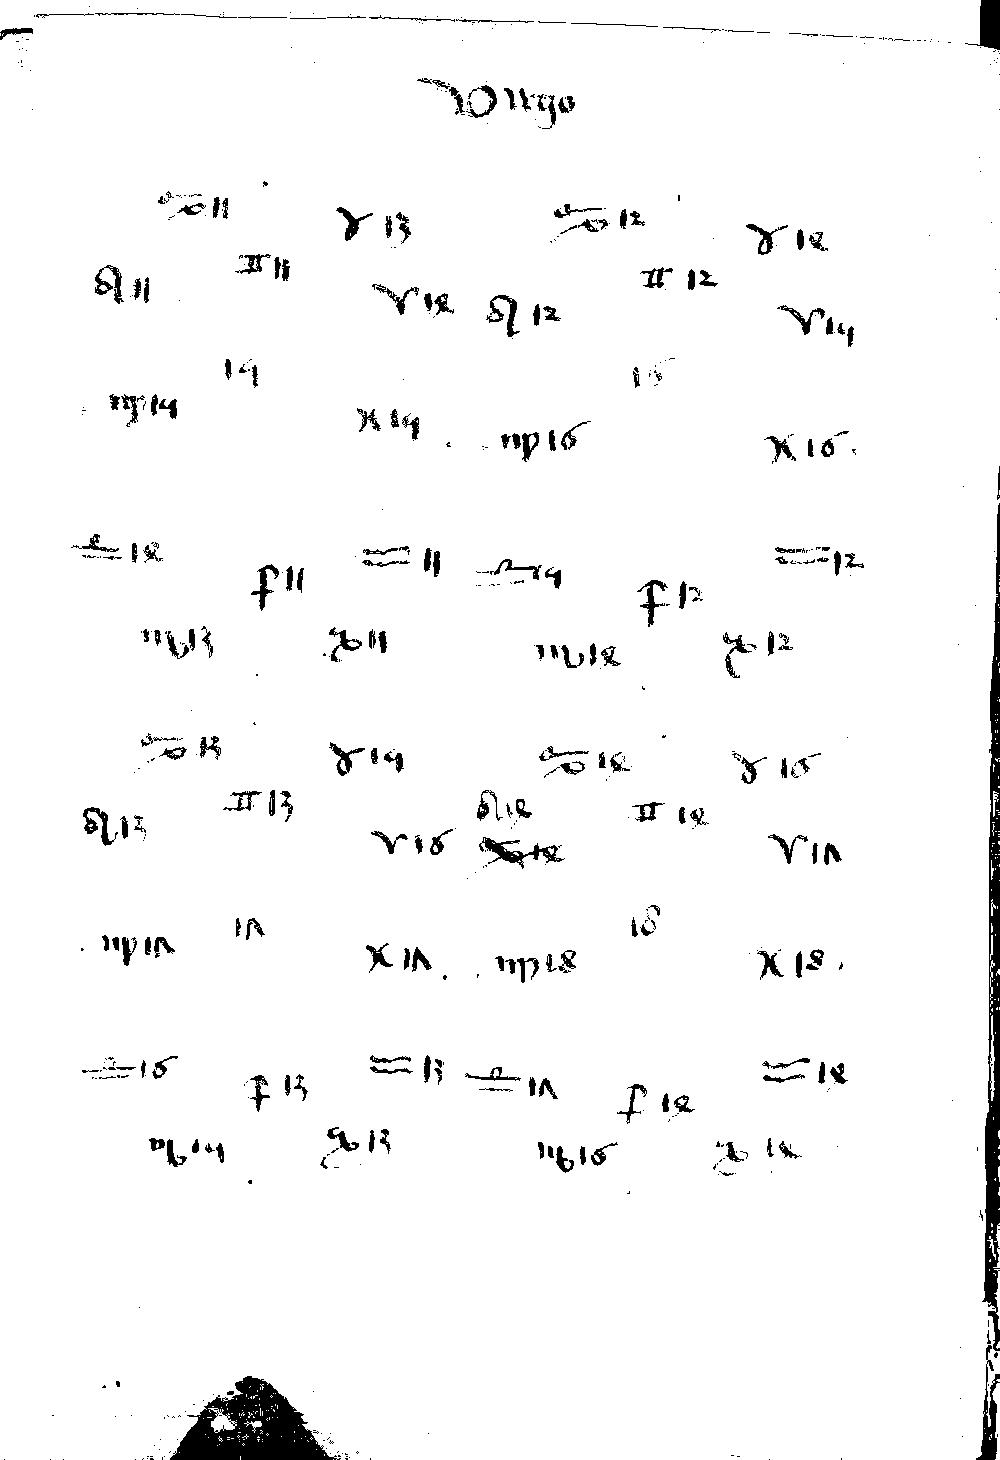 Virgo
♋ 11 ♉ 13 ♋ 12 ♉ 14
♌ 11 ♊ 11 ♈ 14 ♌ 12 ♊ 12 ♈ 15
15 16
♍ 15 ♓ 15 . ♍ 16 ♓ 16 .
♎ 14 ♐ 11 ♒ 11 ♎ 15 ♐ 12 ♒ 12
♏ 13 ♑ 11 ♏ 14 ♑ 12
♋ 13 ♉ 15 ♋ 14 ♉ 16
♌ 13 ♊ 13 ♈ 16 ♌ 14 ♊ 14 ♈ 17
17 18
♍ 17 ♓ 17 . ♍ 18 ♓ 18 .
♎ 16 ♐ 13 ♒ 13 ♎ 17 ♐ 14 ♒ 14
♏ 15 ♑ 13 ♏ 16 ♑ 14